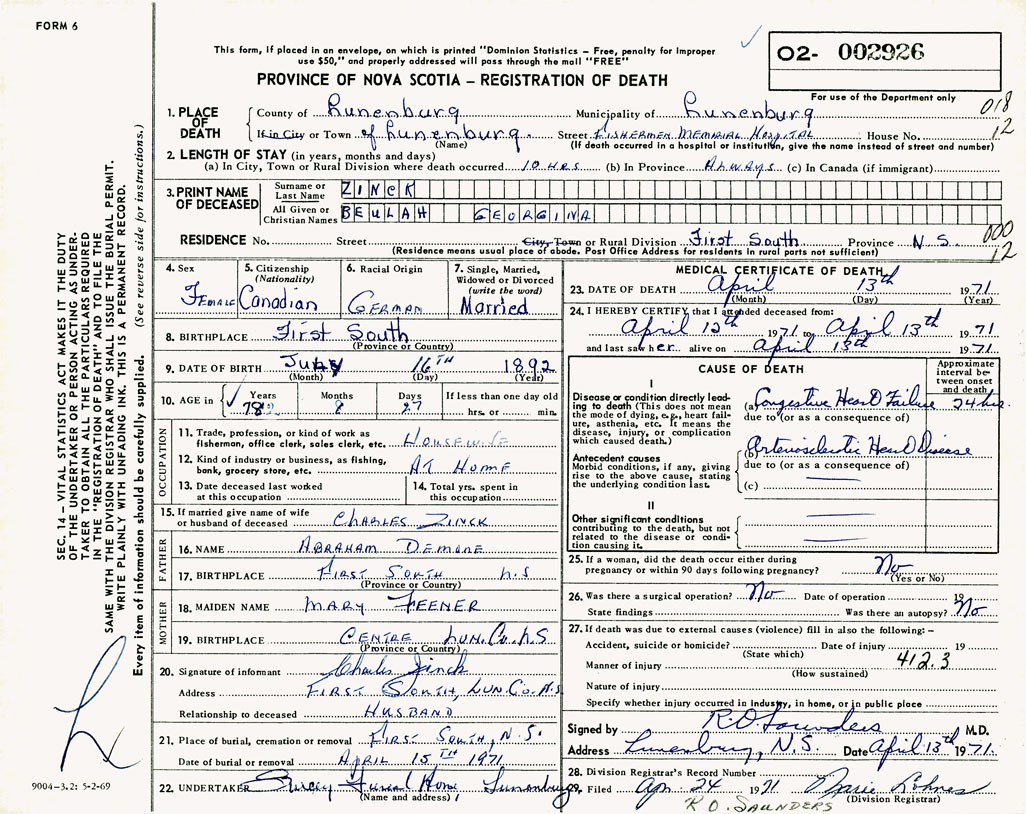 FORM 6
This form, if placed in an envelope, on which is printed "Dominion Statistics – Free, penalty for improper
use $50," and properly addressed will pass through the mail "FREE"
02- 002926
PROVINCE OF NOVA SCOTIA – REGISTRATION OF DEATH
For use of the Department only
018
12
1. PLACE OF DEATH
County of Lunenburg Municipality of Lunenburg
If in City or Town of Lunenburg Street Fishermen Memorial Hospital House No.
(Name) (If death occurred in a hospital or institution, give the name instead of street and number)
2. LENGTH OF STAY (in years, months and days)
(a) In City, Town or Rural Division where death occurred 10 HRS (b) In Province ALWAYS (c) In Canada (if immigrant)
3. PRINT NAME OF DECEASED
Surname or Last Name ZINCK
All Given or Christian Names BEULAH GEORGINA
RESIDENCE No. Street City, Town or Rural Division First South Province N.S.
000
12
(Residence means usual place of abode. Post Office Address for residents in rural parts not sufficient)
4. Sex Female
5. Citizenship (Nationality) Canadian
6. Racial Origin GERMAN
7. Single, Married, Widowed or Divorced (write the word) Married
8. BIRTHPLACE First South
(Province or Country)
9. DATE OF BIRTH July 16TH 1892
(Month) (Day) (Year)
10. AGE in Years 78 Months 8 Days 27 If less than one day old hrs. or min.
OCCUPATION
11. Trade, profession, or kind of work as
fisherman, office clerk, sales clerk, etc. HOUSEWIFE
12. Kind of industry or business, as fishing,
bank, grocery store, etc. AT HOME
13. Date deceased last worked at this occupation
14. Total yrs. spent in this occupation
15. If married give name of wife
or husband of deceased CHARLES ZINCK
FATHER
16. NAME ABRAHAM DEMONE
17. BIRTHPLACE FIRST SOUTH N.S
(Province or Country)
MOTHER
18. MAIDEN NAME MARY FEENER
19. BIRTHPLACE CENTRE LUN. Co. N.S
(Province or Country)
20. Signature of informant Charles Zinck
Address FIRST SOUTH, LUN. Co. N.S
Relationship to deceased HUSBAND
21. Place of burial, cremation or removal FIRST SOUTH, N.S.
Date of burial or removal APRIL 15TH 1971
22. UNDERTAKER Funeral Home Lunenburg
(Name and address)
MEDICAL CERTIFICATE OF DEATH
23. DATE OF DEATH April 13th 1971
(Month) (Day) (Year)
24. I HEREBY CERTIFY that I attended deceased from:
April 12th 1971 to April 13th 1971
and last saw her alive on April 13th 1971
CAUSE OF DEATH
Approximate interval between onset and death
I
Disease or condition directly leading to death (This does not mean the mode of dying, e.g., heart failure, asthenia, etc. It means the disease, injury, or complication which caused death.)
(a) Congestive Heart Failure 24 hrs.
due to (or as a consequence of)
Antecedent causes
Morbid conditions, if any, giving rise to the above cause, stating the underlying condition last.
(b) Arteriosclerotic Heart Disease
due to (or as a consequence of)
(c)
II
Other significant conditions
contributing to the death, but not related to the disease or condition causing it.
25. If a woman, did the death occur either during
pregnancy or within 90 days following pregnancy? No
(Yes or No)
26. Was there a surgical operation? No Date of operation 19
State findings Was there an autopsy? No
27. If death was due to external causes (violence) fill in also the following: –
Accident, suicide or homicide? Date of injury 19
(State which)
412.3
Manner of injury
(How sustained)
Nature of injury
Specify whether injury occurred in industry, in home, or in public place
Signed by R.O. Saunders M.D.
Address Lunenburg, N.S. Date April 13th 1971.
28. Division Registrar's Record Number
29. Filed Apr. 24 1971 Marie Lohnes
(Division Registrar)
R O. SAUNDERS
SEC. 14 – VITAL STATISTICS ACT MAKES IT THE DUTY
OF THE UNDERTAKER OR PERSON ACTING AS UNDER-
TAKER TO OBTAIN ALL THE PARTICULARS REQUIRED
IN THE "REGISTRATION OF DEATH" AND TO FILE THE
SAME WITH THE DIVISION REGISTRAR WHO SHALL ISSUE THE BURIAL PERMIT.
WRITE PLAINLY WITH UNFADING INK. THIS IS A PERMANENT RECORD.
Every item of information should be carefully supplied. (See reverse side for instructions.)
9004-3.2: 5-2-69